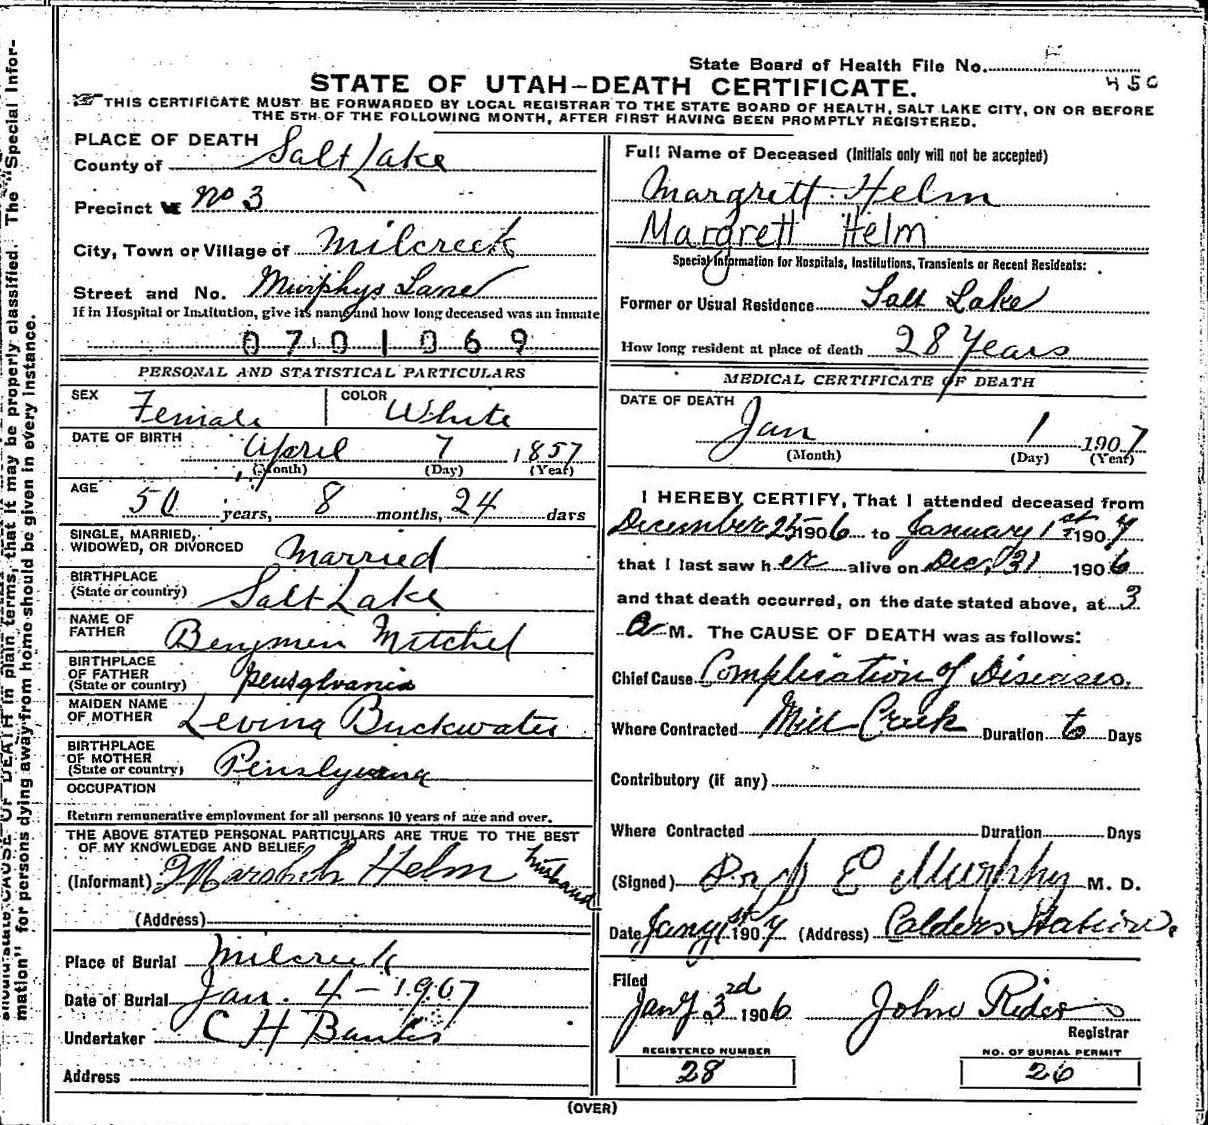 State Board of Health File No.
450
STATE OF UTAH—DEATH CERTIFICATE.
THIS CERTIFICATE MUST BE FORWARDED BY LOCAL REGISTRAR TO THE STATE BOARD OF HEALTH, SALT LAKE CITY, ON OR BEFORE
THE 5TH OF THE FOLLOWING MONTH, AFTER FIRST HAVING BEEN PROMPTLY REGISTERED.
PLACE OF DEATH
County of Salt Lake
Precinct No 3
City, Town or Village of Milcreek
Street and No. Murphys Lane
If in Hospital or Institution, give its name and how long deceased was an inmate
0701069
PERSONAL AND STATISTICAL PARTICULARS
SEX Female COLOR White
DATE OF BIRTH April 7 1857
(Month) (Day) (Year)
AGE 50 years, 8 months, 24 days
SINGLE, MARRIED,
WIDOWED, OR DIVORCED Married
BIRTHPLACE
(State or country) Salt Lake
NAME OF
FATHER Benjmin Mitchel
BIRTHPLACE
OF FATHER
(State or country) Pensylvania
MAIDEN NAME
OF MOTHER Levina Buckwater
BIRTHPLACE
OF MOTHER
(State or country)
OCCUPATION
Return remunerative employment for all persons 10 years of age and over.
THE ABOVE STATED PERSONAL PARTICULARS ARE TRUE TO THE BEST
OF MY KNOWLEDGE AND BELIEF
(Informant) Helm husband
(Address)
Place of Burial Milcreek
Date of Burial Jan. 4 - 1907
Undertaker C H Banks
Address
Full Name of Deceased (Initials only will not be accepted)
Margrett Helm
Margrett Helm
Special Information for Hospitals, Institutions, Transients or Recent Residents:
Former or Usual Residence Salt Lake
How long resident at place of death 28 Years
MEDICAL CERTIFICATE OF DEATH
DATE OF DEATH
Jan 1 1907
(Month) (Day) (Year)
I HEREBY CERTIFY, That I attended deceased from
December 25 1906 to January 1st 1907
that I last saw her alive on Dec. 31 1906
and that death occurred, on the date stated above, at 3
a M. The CAUSE OF DEATH was as follows:
Chief Cause Complication of Diseases.
Where Contracted Mill Creek Duration Days
Contributory (if any)
Where Contracted Duration Days
(Signed) E Murphy M. D.
Date Jany 1st 1907 (Address) Calders Station.
Filed
Jany 3rd 1906 John Rider
Registrar
REGISTERED NUMBER
28
NO. OF BURIAL PERMIT
26
(OVER)
should state CAUSE OF DEATH in plain terms, that it may be properly classified. The "Special Infor-
mation" for persons dying away from home should be given in every instance.